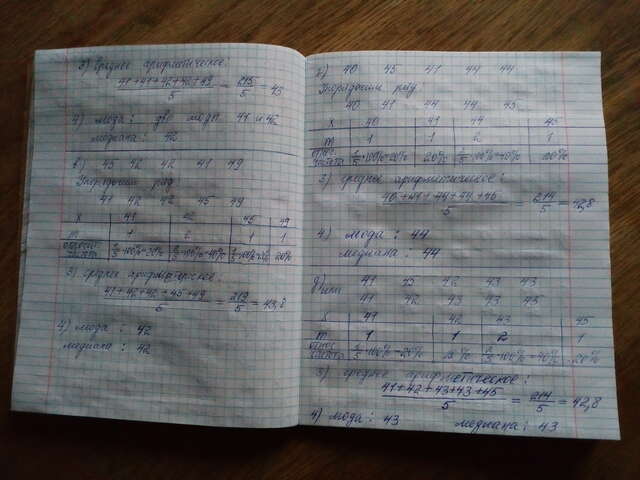 3) Среднее арифметическое:
41+41+42+42+49/5 = 215/5 = 43
4) мода: две моды 41 и 42
медиана: 42
в) 45 42 42 41 49
Упорядочим ряд
41 42 42 45 49
X 41 42 45 49
m 1 2 1 1
относ. частота 1/5·100%=20% 2/5·100%=40% 1/5·100%=20% 20%
3) среднее арифметическое:
41+42+42+45+49/5 = 219/5 = 43,8
4) мода: 42
медиана: 42
г) 40 45 41 44 44
Упорядочим ряд
40 41 44 44 45
X 40 41 44 45
m 1 1 2 1
относ. частота 1/5·100%=20% 20% 2/5·100%=40% 20%
3) среднее арифметическое:
40+41+44+44+45/5 = 214/5 = 42,8
4) мода: 44
медиана: 44
д) 41 45 42 43 43
41 42 43 43 45
X 41 42 43 45
m 1 1 2 1
относ. частота 1/5·100%=20% 20% 2/5·100%=40% 20%
3) среднее арифметическое:
41+42+43+43+45/5 = 214/5 = 42,8
4) мода: 43 медиана: 43